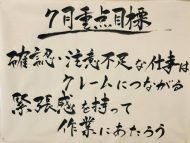 7月重点目標
確認・注意不足な仕事は
クレームにつながる
緊張感を持って
作業にあたろう